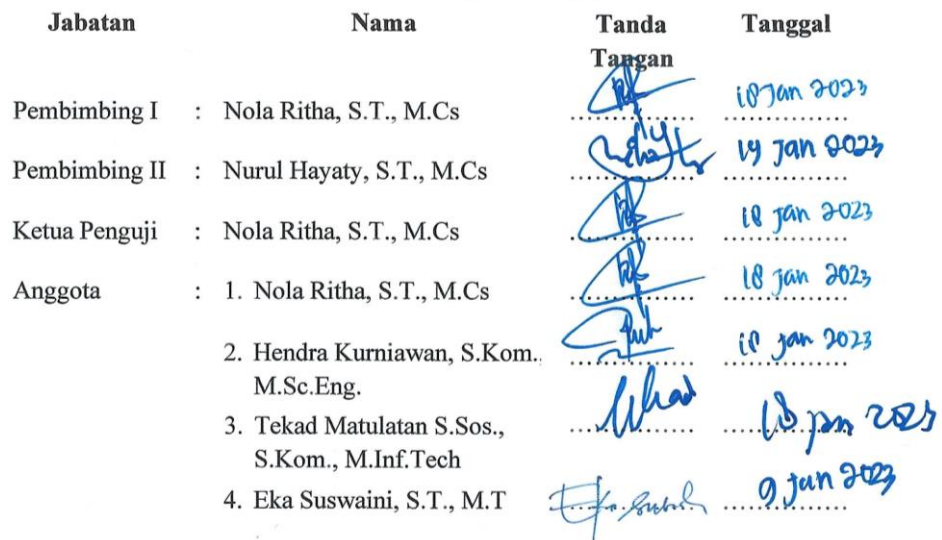 Jabatan Nama Tanda Tanggal
Tangan
Pembimbing I : Nola Ritha, S.T., M.Cs .................... 18 Jan 2023
Pembimbing II : Nurul Hayaty, S.T., M.Cs .................... 19 Jan 2023
Ketua Penguji : Nola Ritha, S.T., M.Cs .................... 18 Jan 2023
Anggota : 1. Nola Ritha, S.T., M.Cs .................... 18 Jan 2023
2. Hendra Kurniawan, S.Kom., .................... 18 Jan 2023
M.Sc.Eng.
3. Tekad Matulatan S.Sos., .................... 18 jan 2023
S.Kom., M.Inf.Tech
4. Eka Suswaini, S.T., M.T .................... 9 Jan 2023